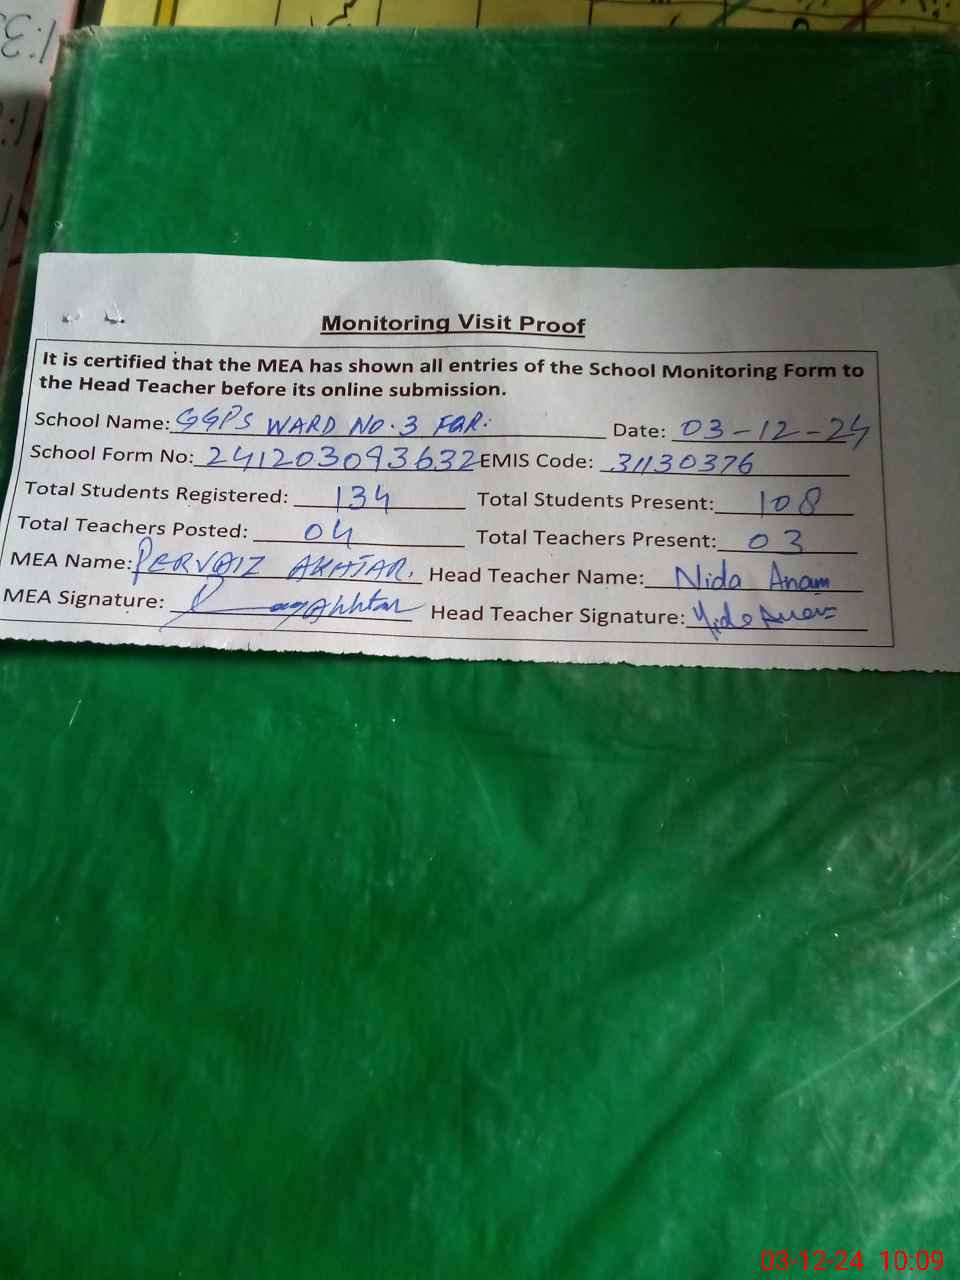 Monitoring Visit Proof
It is certified that the MEA has shown all entries of the School Monitoring Form to
the Head Teacher before its online submission.
School Name: GGPS WARD NO.3 FGR. Date: 03-12-24
School Form No: 241203093632 EMIS Code: 31130376
Total Students Registered: 134 Total Students Present: 108
Total Teachers Posted: 04 Total Teachers Present: 03
MEA Name: PERVAIZ AKHTAR. Head Teacher Name: Nida Anam
MEA Signature: Akhtar Head Teacher Signature: Nida Anam
03-12-24 10:09